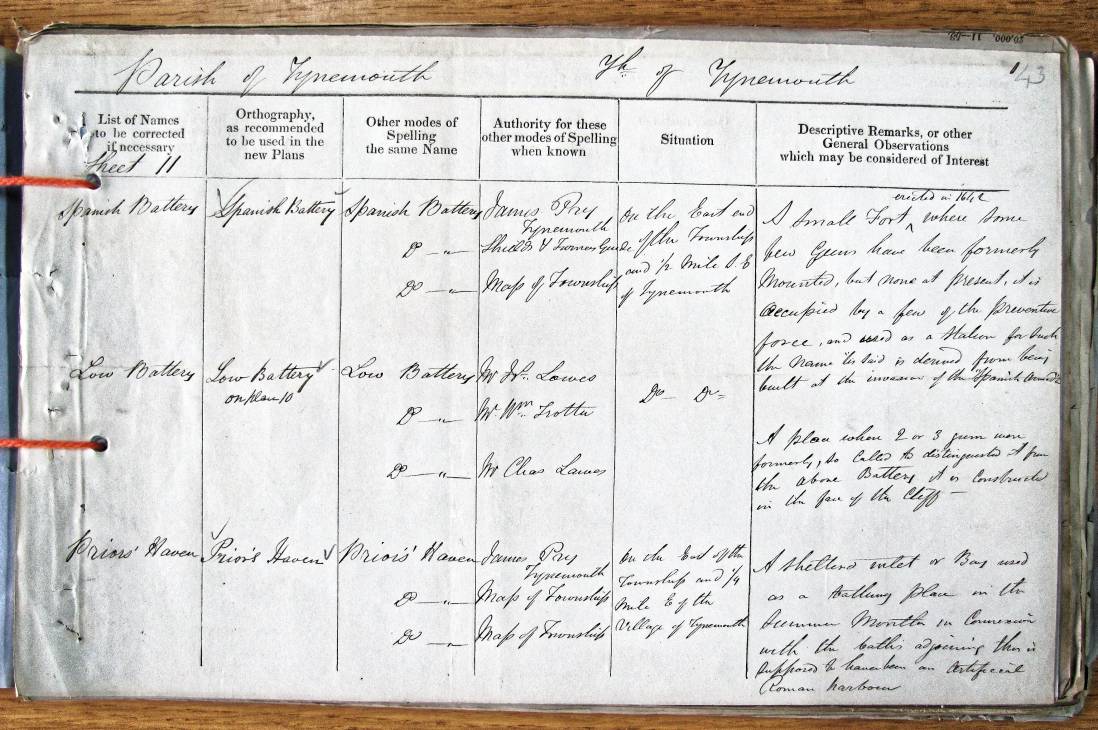 Parish of Tynemouth
Tp of Tynemouth
43
List of Names
to be corrected
if necessary
Sheet 11
Orthography,
as recommended
to be used in the
new Plans
Other modes of
Spelling
the same Name
Authority for these
other modes of Spelling
when known
Situation
Descriptive Remarks, or other
General Observations
which may be considered of Interest
Spanish Battery
Spanish Battery
Spanish Battery
Do — "
Do — "
James Pry
Tynemouth
Shields &
Map of Township
On the East end
of the Township
and 1/2 Mile S.E
of Tynemouth
erected in 1642
A Small Fort ^ where some
few Guns have been formerly
Mounted, but none at present, it is
Occupied by a few of the preventive
force, and used as a station for Such
the Name tis said is derived from being
built at the invasion of the "Spanish Armada
Low Battery
Low Battery
on plan 10
Low Battery
Do — "
Do — "
Mr. Jn. Lawes
Mr. Wm Trotter
Mr Chas Lawes
Do — Do =
A place where 2 or 3 guns were
formerly, so called to distinguished it from
the above Battery it is constructed
in the face of the Cliff —
Priors' Haven
Prior's Haven
Priors' Haven
Do — "
Do — "
James Pry
Tynemouth
Map of Township
Map of Township
On the East of the
Township and 1/4
Mile E of the
Village of Tynemouth
A sheltered inlet or Bay used
as a bathing place in the
Summer Months in Connexion
with the baths adjoining this is
supposed to have been an Artificial
Roman harbour